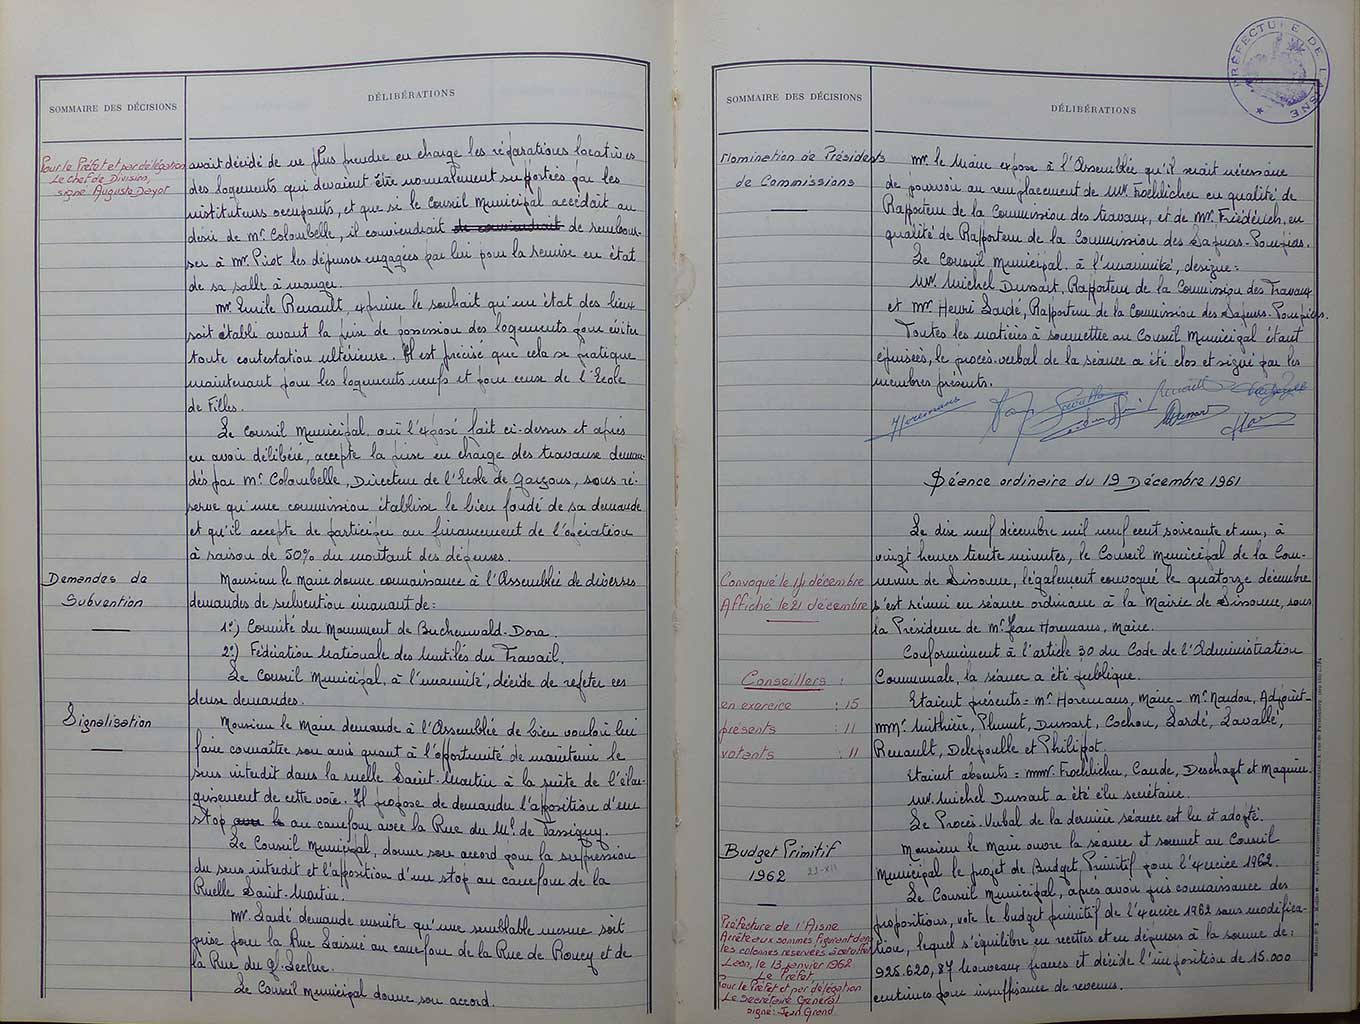 SOMMAIRE DES DÉCISIONS
DÉLIBÉRATIONS
Pour le Préfet et par délégation
Le Chef de Division,
signé Auguste Dayot
avait décidé de ne plus prendre en charge les réparations locatives
des logements qui devaient être normalement supportées par les
instituteurs occupants, et que si le Conseil Municipal accédait au
désir de Mr. Colombelle, il conviendrait de rembour-
ser à Mr. Piot les dépenses engagées par lui pour la remise en état
de sa salle à manger.
Mr. Emile Renault, exprime le souhait qu'un état des lieux
soit établi avant la prise de possession des logements pour éviter
toute contestation ultérieure. Il est précisé que cela se pratique
maintenant pour les logements neufs et pour ceux de l'Ecole
de Filles.
Le Conseil Municipal, ouï l'exposé fait ci-dessus et après
en avoir délibéré, accepte la prise en charge des travaux deman-
dés par Mr. Colombelle, Directeur de l'Ecole de Garçons, sous ré-
serve qu'une commission établisse le bien fondé de sa demande
et qu'il accepte de participer au financement de l'opération
à raison de 50% du montant des dépenses.
Demandes de
Subvention
Monsieur le Maire donne connaissance à l'Assemblée de diverses
demandes de subvention émanant de:
1º) Comité du Monument de Buchenwald-Dora.
2º) Fédération Nationale des Mutilés du Travail.
Le Conseil Municipal, à l'unanimité, décide de rejeter ces
deux demandes.
Signalisation
Monsieur le Maire demande à l'Assemblée de bien vouloir lui
faire connaître son avis quant à l'opportunité de maintenir le
sens interdit dans la ruelle Saint-Martin à la suite de l'élar-
gissement de cette voie. Il propose de demander l'apposition d'un
stop au carrefour avec la Rue du Ml. de Tassigny.
Le Conseil Municipal, donne son accord pour la suppression
du sens interdit et l'apposition d'un stop au carrefour de la
Ruelle Saint-Martin.
Mr. Lardé demande ensuite qu'une semblable mesure soit
prise pour la Rue Laisné au carrefour de la Rue de Roucy et de
la Rue du Gl. Leclerc.
Le Conseil Municipal donne son accord.
PRÉFECTURE DE L'AISNE
SOMMAIRE DES DÉCISIONS
DÉLIBÉRATIONS
Nomination de Présidents
de Commissions
Mr. le Maire expose à l'Assemblée qu'il serait nécessaire
de pourvoir au remplacement de Mr. Froehlicher en qualité de
Rapporteur de la Commission des travaux, et de Mr. Friedérich en
qualité de Rapporteur de la Commission des Sapeurs-Pompiers.
Le Conseil Municipal, à l'unanimité, désigne:
Mr. Michel Dussart, Rapporteur de la Commission des Travaux
et Mr. Henri Lardé, Rapporteur de la Commission des Sapeurs-Pompiers.
Toutes les matières à soumettre au Conseil Municipal étant
épuisées, le procès-verbal de la séance a été clos et signé par les
membres présents.
Horemans
Séance ordinaire du 19 Décembre 1961
Le dix neuf décembre mil neuf cent soixante et un, à
vingt heures trente minutes, le Conseil Municipal de la Com-
mune de Sissonne, légalement convoqué le quatorze décembre
s'est réuni en séance ordinaire à la Mairie de Sissonne, sous
la Présidence de Mr. Jean Horemans, Maire.
Convoqué le 14 décembre
Affiché le 21 décembre
Conformément à l'article 30 du Code de l'Administration
Communale, la séance a été publique.
Conseillers :
en exercice : 15
présents : 11
votants : 11
Etaient présents = Mr. Horemans, Maire - Mr. Naudou, Adjoint -
MMrs. Mithière, Plumet, Dussart, Cochou, Lardé, Lavallé,
Renault, Delepoulle et Philipot.
Etaient absents = MMrs. Froehlicher, Caude, Deschagt et Maquin.
Mr. Michel Dussart a été élu secrétaire.
Le Procès-Verbal de la dernière séance est lu et adopté.
Budget Primitif
1962
23-XII
Monsieur le Maire ouvre la séance et soumet au Conseil
Municipal le projet de Budget Primitif pour l'exercice 1962.
Le Conseil Municipal, après avoir pris connaissance des
propositions, vote le budget primitif de l'exercice 1962 sans modifica-
tion, lequel s'équilibre en recettes et en dépenses à la somme de:
925.620,87 Nouveaux francs et décide l'imposition de 15.000
centimes pour insuffisance de revenus.
Préfecture de l'Aisne
Arrêté aux sommes figurant dans
les colonnes réservées à cet effet
Laon, le 13 janvier 1962
Le Préfet
Pour le Préfet et par délégation
Le Secrétaire Général
signé: Jean Grand